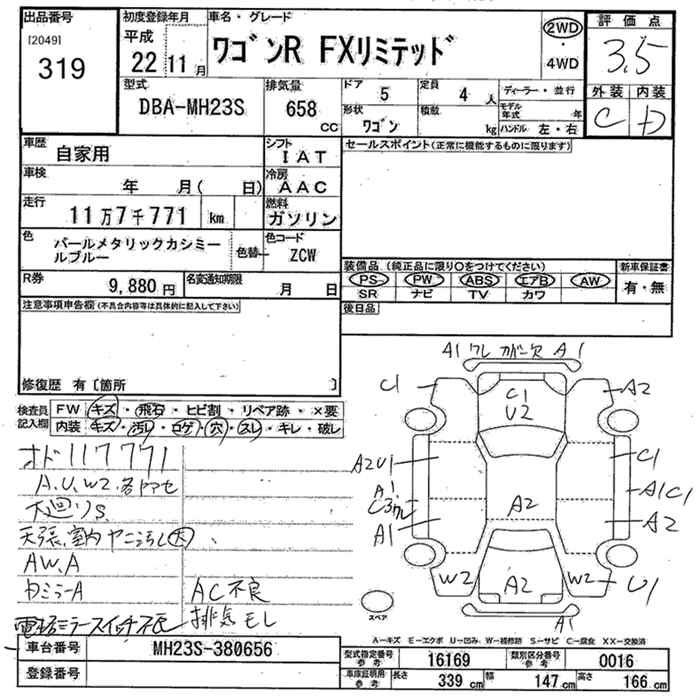 出品番号
[2049]
319
初度登録年月
平成
22 11月
車名・グレード
ワゴンR FXリミテッド
2WD
・
4WD
評価点
3.5
外装 内装
C D
型式
DBA-MH23S
排気量
658
cc
ドア 5
定員 4人
形状
ワゴン
積載
kg
ディーラー・並行
モデル年式 年
ハンドル 左・右
車歴
自家用
シフト
IAT
セールスポイント(正常に機能するものに限ります)
車検
年 月( 日)
冷房
AAC
走行
11万7千771 km
燃料
ガソリン
色
パールメタリックカシミールブルー
色替
色コード
ZCW
R券
9,880円
名変通知期限
月 日
装備品(純正品に限り○をつけてください)
PS PW ABS エアB AW
SR ナビ TV カワ
新車保証書
有・無
後日品
注意事項申告欄(不具合内容等は具体的に記入して下さい)
修復歴 有〔箇所 〕
検査員記入欄
FW キズ・飛石・ヒビ割・リペア跡・×要
内装 キズ・汚レ・コゲ・穴・スレ・キレ・破レ
オド117771
A.U.W2.各ヤセ
大廻りS
天張、室内ヤニ汚レ大
AW.A
Dミラー A
電格ミラースイッチ不良
AC不良
排気モレ
A1 ワレ カバー欠 A1
C1
C1
U2
A2
A2U1
C1
A1
C3ワレ
A1C1
A1
A2
A2
W2
A2
W2
U1
A1
スペア
A-キズ E-エクボ U-凹み、W-補修跡 S-サビ C-腐食 XX-交換済
車台番号
MH23S-380656
登録番号
型式指定番号参考
16169
類別区分番号参考
0016
車庫証明用参考
長さ 339cm
幅 147cm
高さ 166cm